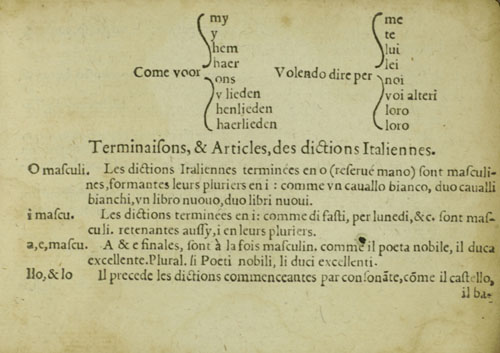 my
y
hem
haer
Come voor
ons
v lieden
henlieden
haerlieden
me
te
lui
lei
Volendo dire per
noi
voi alteri
loro
loro
Terminaiſons, & Articles, des dictions Italiennes.
O maſculi. Les dictions Italiennes terminées en o (reſerué mano) ſont maſculi-
nes, formantes leurs pluriers en i : comme vn cauallo bianco, duo caualli
bianchi, vn libro nuouo, duo libri nuoui.
i maſcu. Les dictions terminees en i: comme di faſti, per lunedi, &c. ſont maſ-
culi. retenantes auſſy, i en leurs pluriers.
a, e, maſcu. A & e finales, ſont à la fois maſculin. comme il poeta nobile, il duca
excellente. Plural. ſi Poeti nobili, li duci excellenti.
Ilo, & lo Il precede les dictions commenceantes par conſonãte, cõme il caſtello,
il ba-